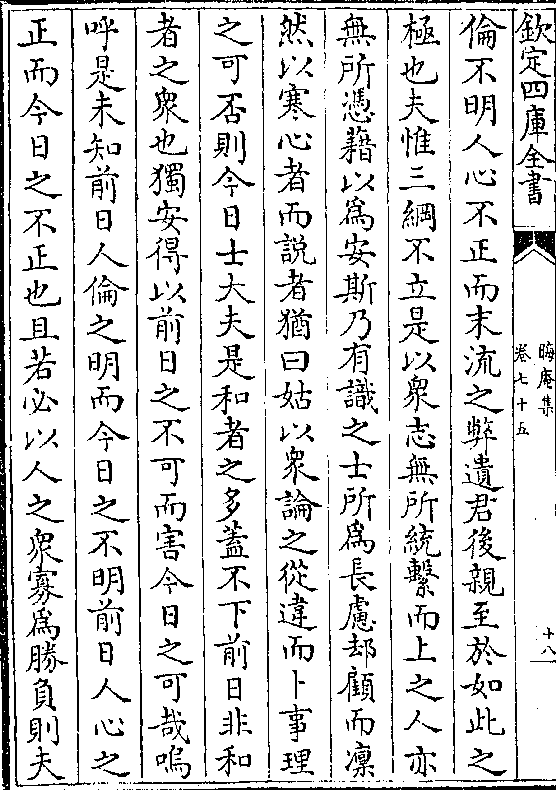 欽定四庫全書
晦庵集
卷七十五
十八
倫不明人心不正而末流之弊遺君後親至於如此之
極也夫惟三綱不立是以衆志無所統繫而上之人亦
無所憑藉以爲安斯乃有識之士所爲長慮却顧而凛
然以寒心者而説者猶曰姑以衆論之從違而卜事理
之可否則今日士大夫是和者之多蓋不下前日非和
者之衆也獨安得以前日之不可而害今日之可哉嗚
呼是未知前日人倫之明而今日之不明前日人心之
正而今日之不正也且若必以人之衆寡爲勝負則夫